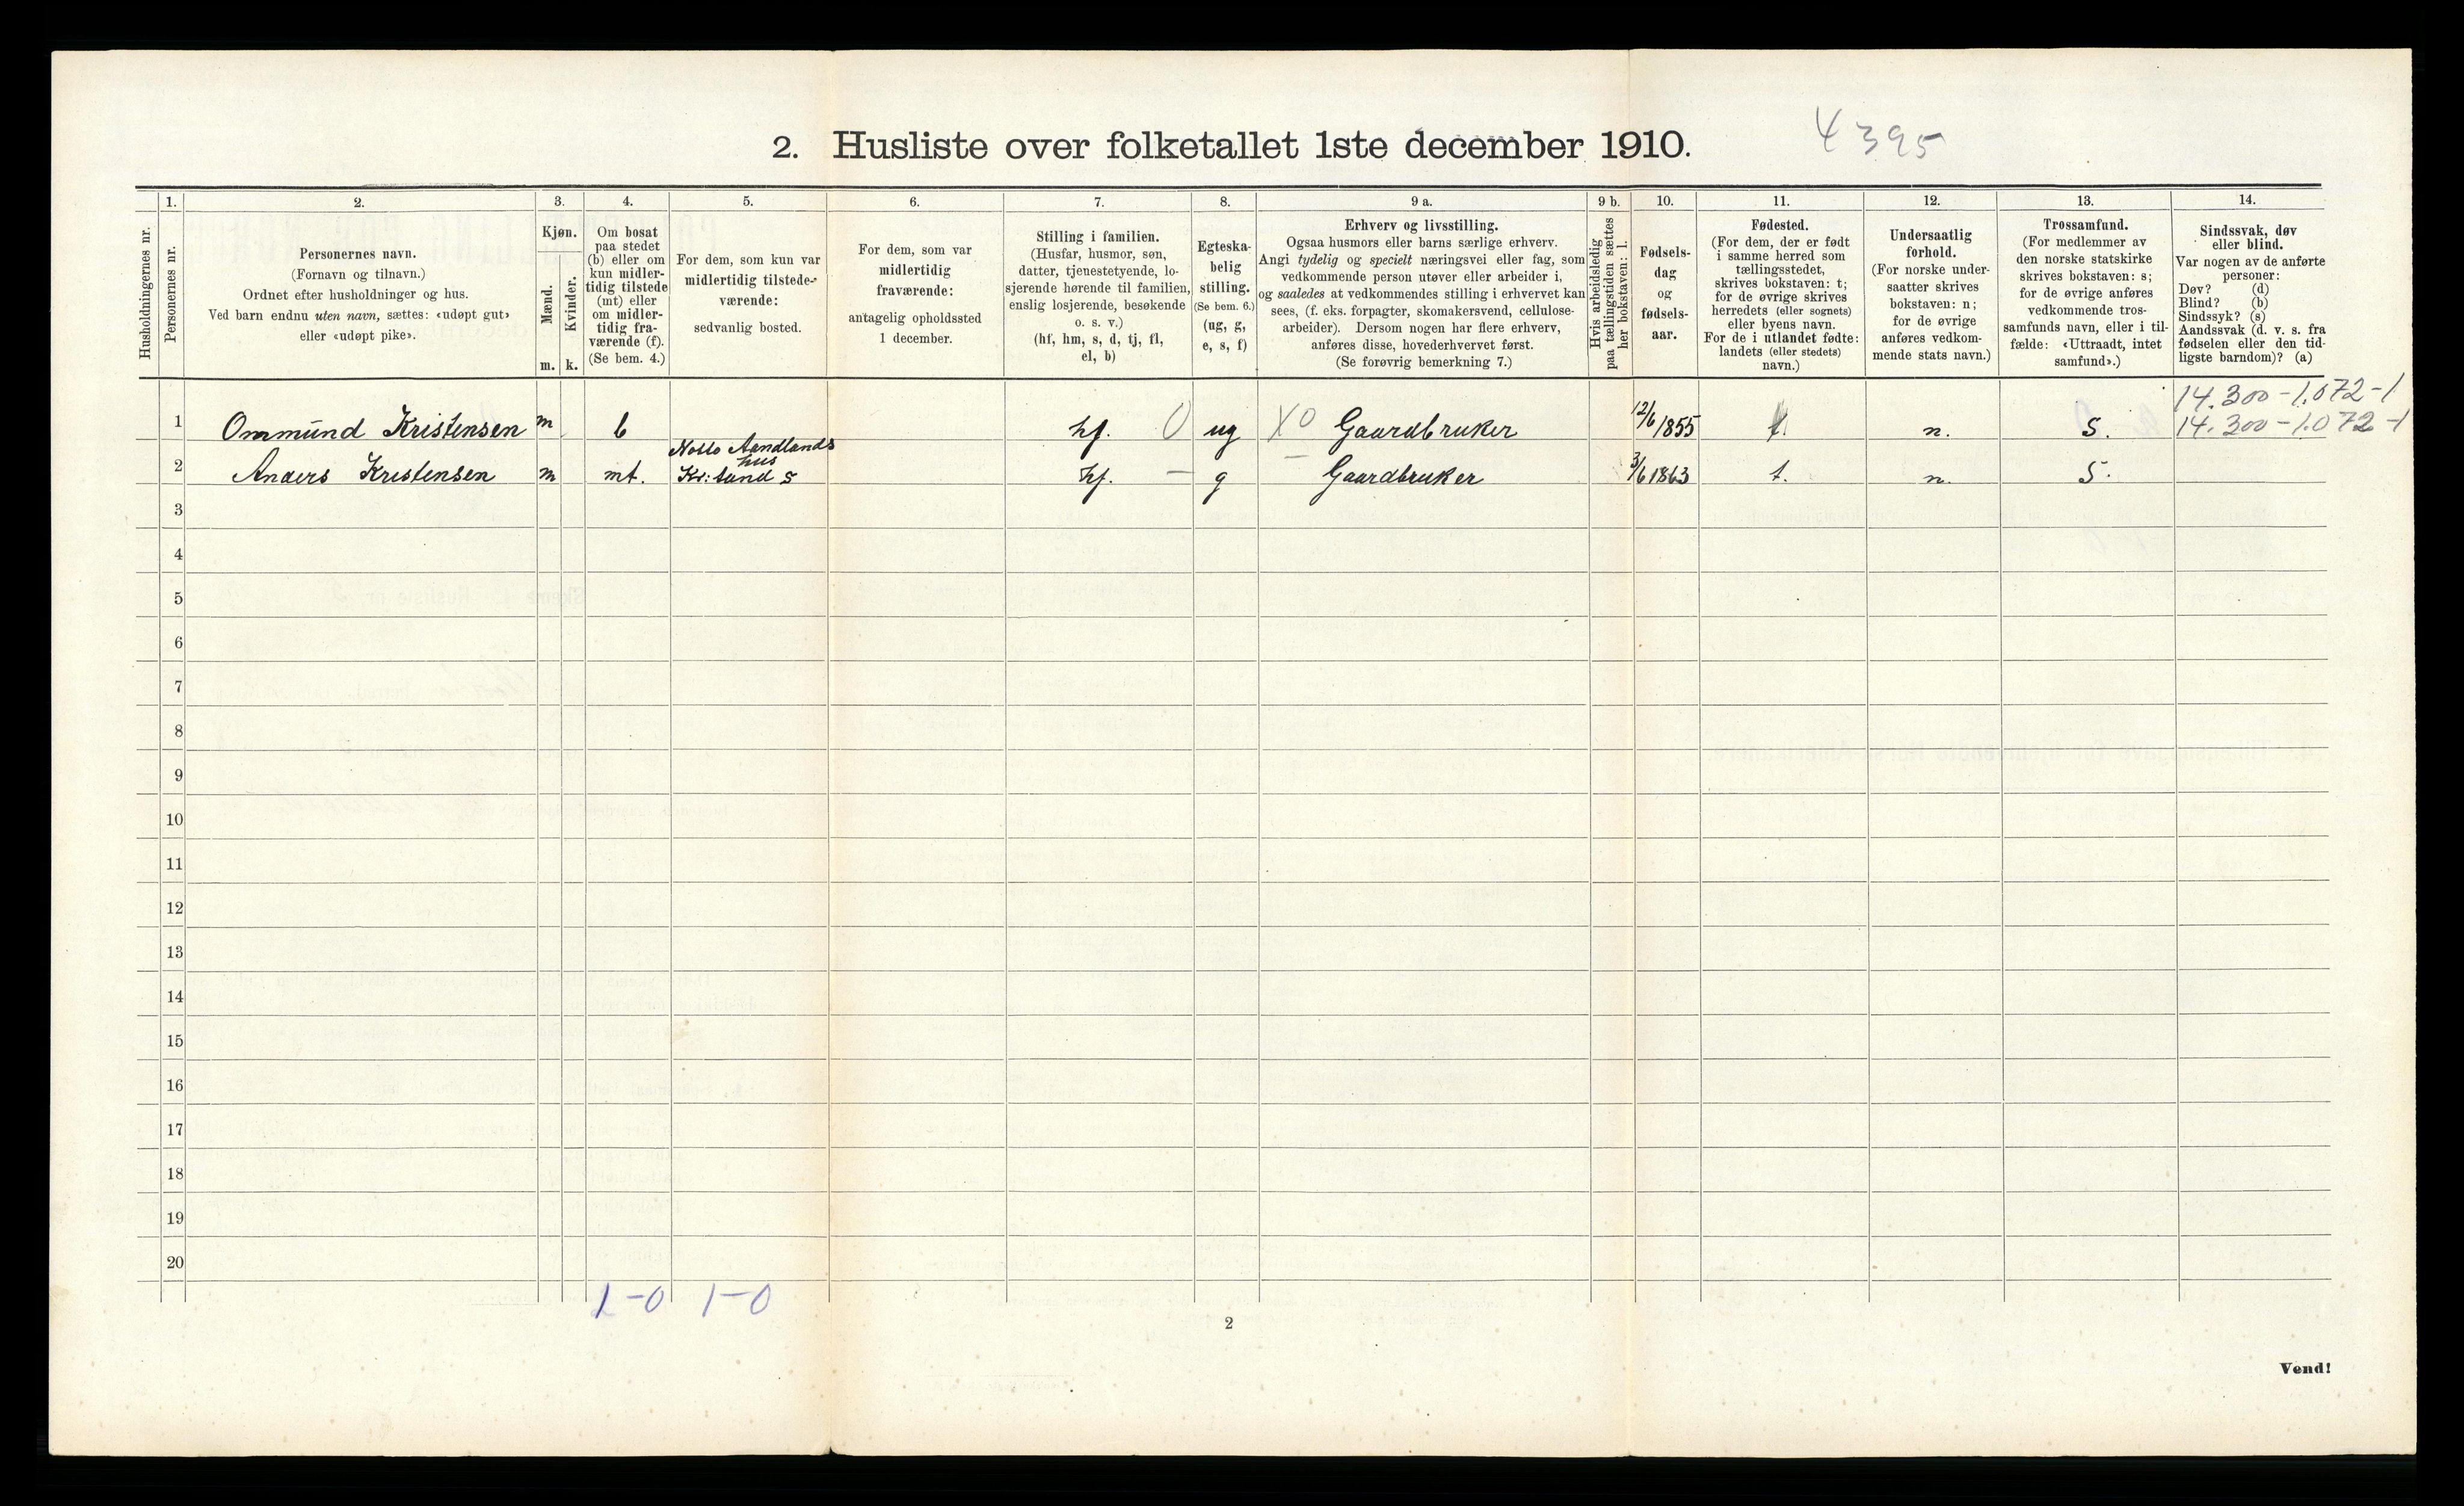 2. Husliste over folketallet 1ste december 1910.
4395
Husholdningernes nr.
1.
Personernes nr.
2.
Personernes navn.
(Fornavn og tilnavn.)
Ordnet efter husholdninger og hus.
Ved barn endnu uten navn, sættes: «udøpt gut»
eller «udøpt pike».
3.
Kjøn.
Mænd.
Kvinder.
m. k.
4.
Om bosat
paa stedet
(b) eller om
kun midler-
tidig tilstede
(mt) eller
om midler-
tidig fra-
værende (f).
(Se bem. 4.)
5.
For dem, som kun var
midlertidig tilstede-
værende:
sedvanlig bosted.
6.
For dem, som var
midlertidig
fraværende:
antagelig opholdssted
1 december.
7.
Stilling i familien.
(Husfar, husmor, søn,
datter, tjenestetyende, lo-
sjerende hørende til familien,
enslig losjerende, besøkende
o. s. v.)
(hf, hm, s, d, tj, fl,
el, b)
8.
Egteska-
belig
stilling.
(Se bem. 6.)
(ug, g,
e, s, f)
9 a.
Erhverv og livsstilling.
Ogsaa husmors eller barns særlige erhverv.
Angi tydelig og specielt næringsvei eller fag, som
vedkommende person utøver eller arbeider i,
og saaledes at vedkommendes stilling i erhvervet kan
sees, (f. eks. forpagter, skomakersvend, cellulose-
arbeider). Dersom nogen har flere erhverv,
anføres disse, hovederhvervet først.
(Se forøvrig bemerkning 7.)
9 b.
Hvis arbeidsledig
paa tællingstiden sættes
her bokstaven: l.
10.
Fødsels-
dag
og
fødsels-
aar.
11.
Fødested.
(For dem, der er født
i samme herred som
tællingsstedet,
skrives bokstaven: t;
for de øvrige skrives
herredets (eller sognets)
eller byens navn.
For de i utlandet fødte:
landets (eller stedets)
navn.)
12.
Undersaatlig
forhold.
(For norske under-
saatter skrives
bokstaven: n;
for de øvrige
anføres vedkom-
mende stats navn.)
13.
Trossamfund.
(For medlemmer av
den norske statskirke
skrives bokstaven: s;
for de øvrige anføres
vedkommende tros-
samfunds navn, eller i til-
fælde: «Uttraadt, intet
samfund».)
14.
Sindssvak, døv
eller blind.
Var nogen av de anførte
personer:
Døv? (d)
Blind? (b)
Sindssyk? (s)
Aandssvak (d. v. s. fra
fødselen eller den tid-
ligste barndom)? (a)
14.300-1.072-1
1 Ommund Kristensen m b hf. 0 ug X0 Gaardbruker 12/6 1855 t. n. s. 14.300-1.072-1
Aandlands
hus
2 Anders Kristensen m mt. Kr:sand S hf. - g Gaardbruker 3/6 1863 t. n. s.
3
4
5
6
7
8
9
10
11
12
13
14
15
16
17
18
19
20
1-0 1-0
2
Vend!